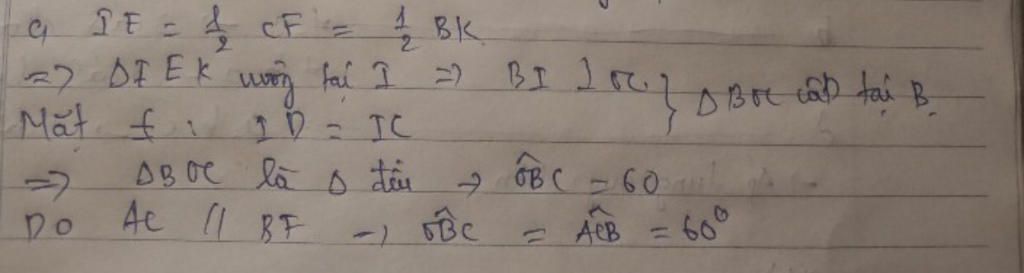 c, IE = 1/2 CF = 1/2 BK
=> ΔIEK vuông tại I => BI ⊥ OC } ΔBOC cân tại B.
Mặt ≠ : ID = IC
=> ΔBOC là Δ đều → OBC = 60
Do AC // BF → OBC = ACB = 60°